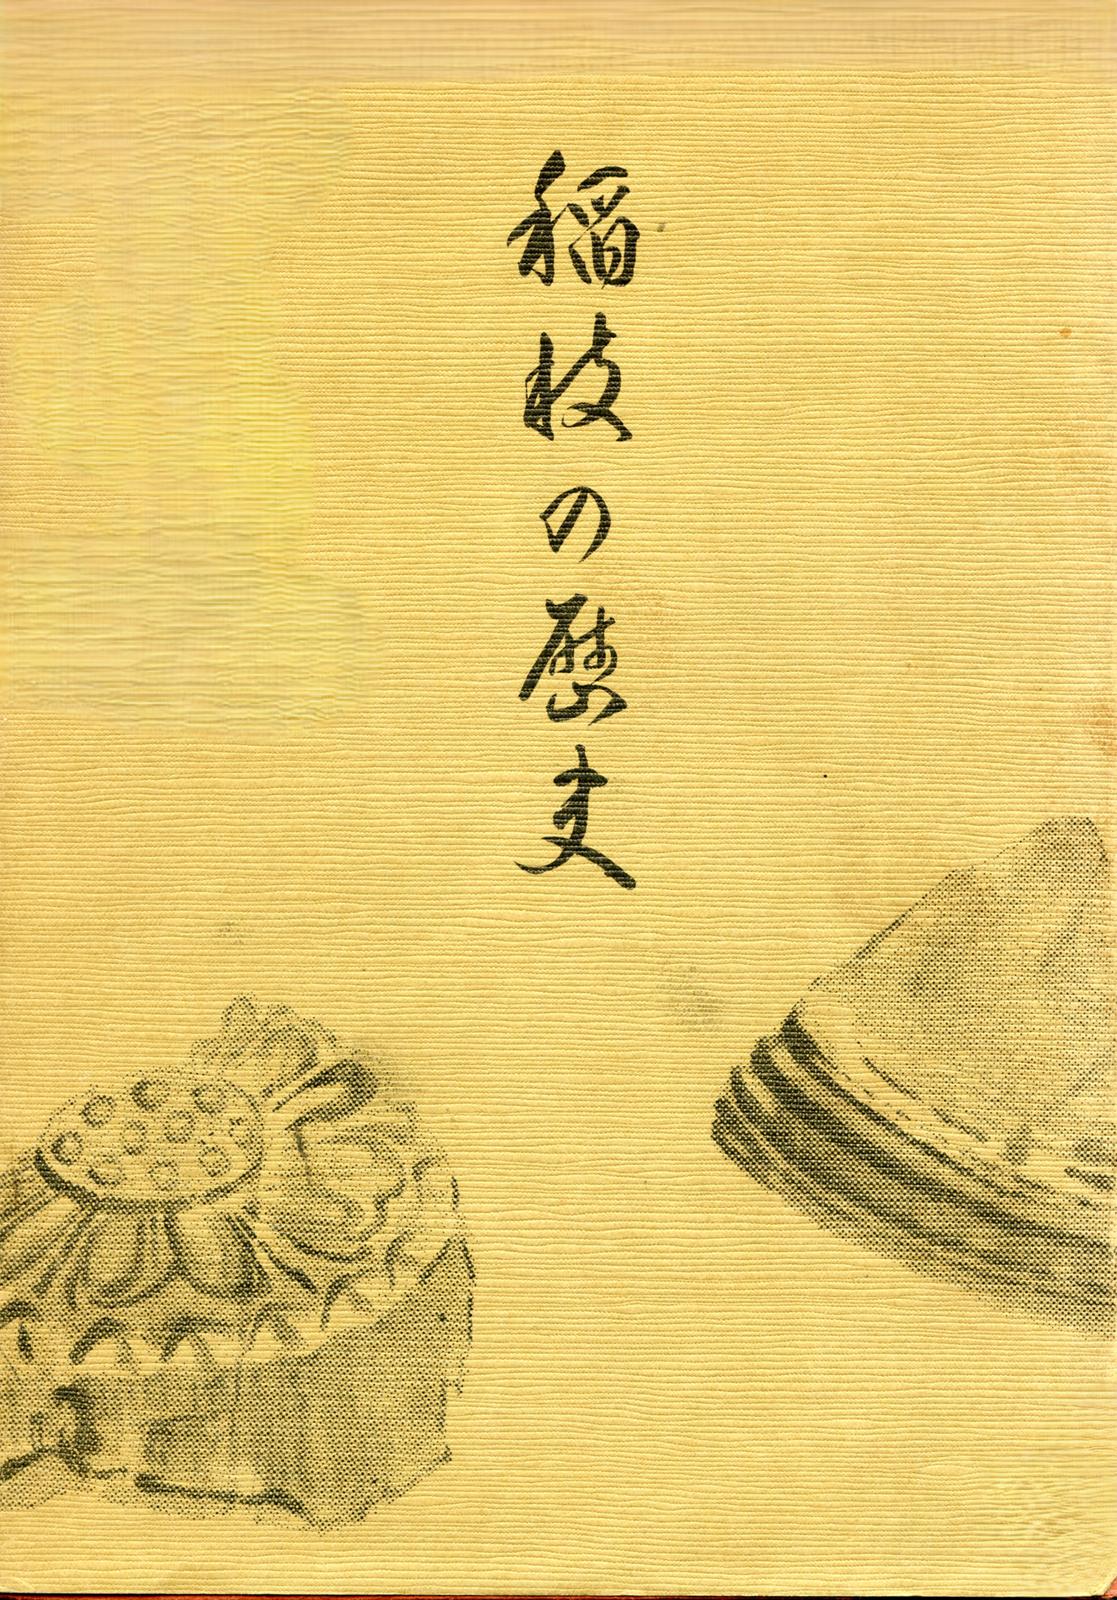 稲枝の歴史